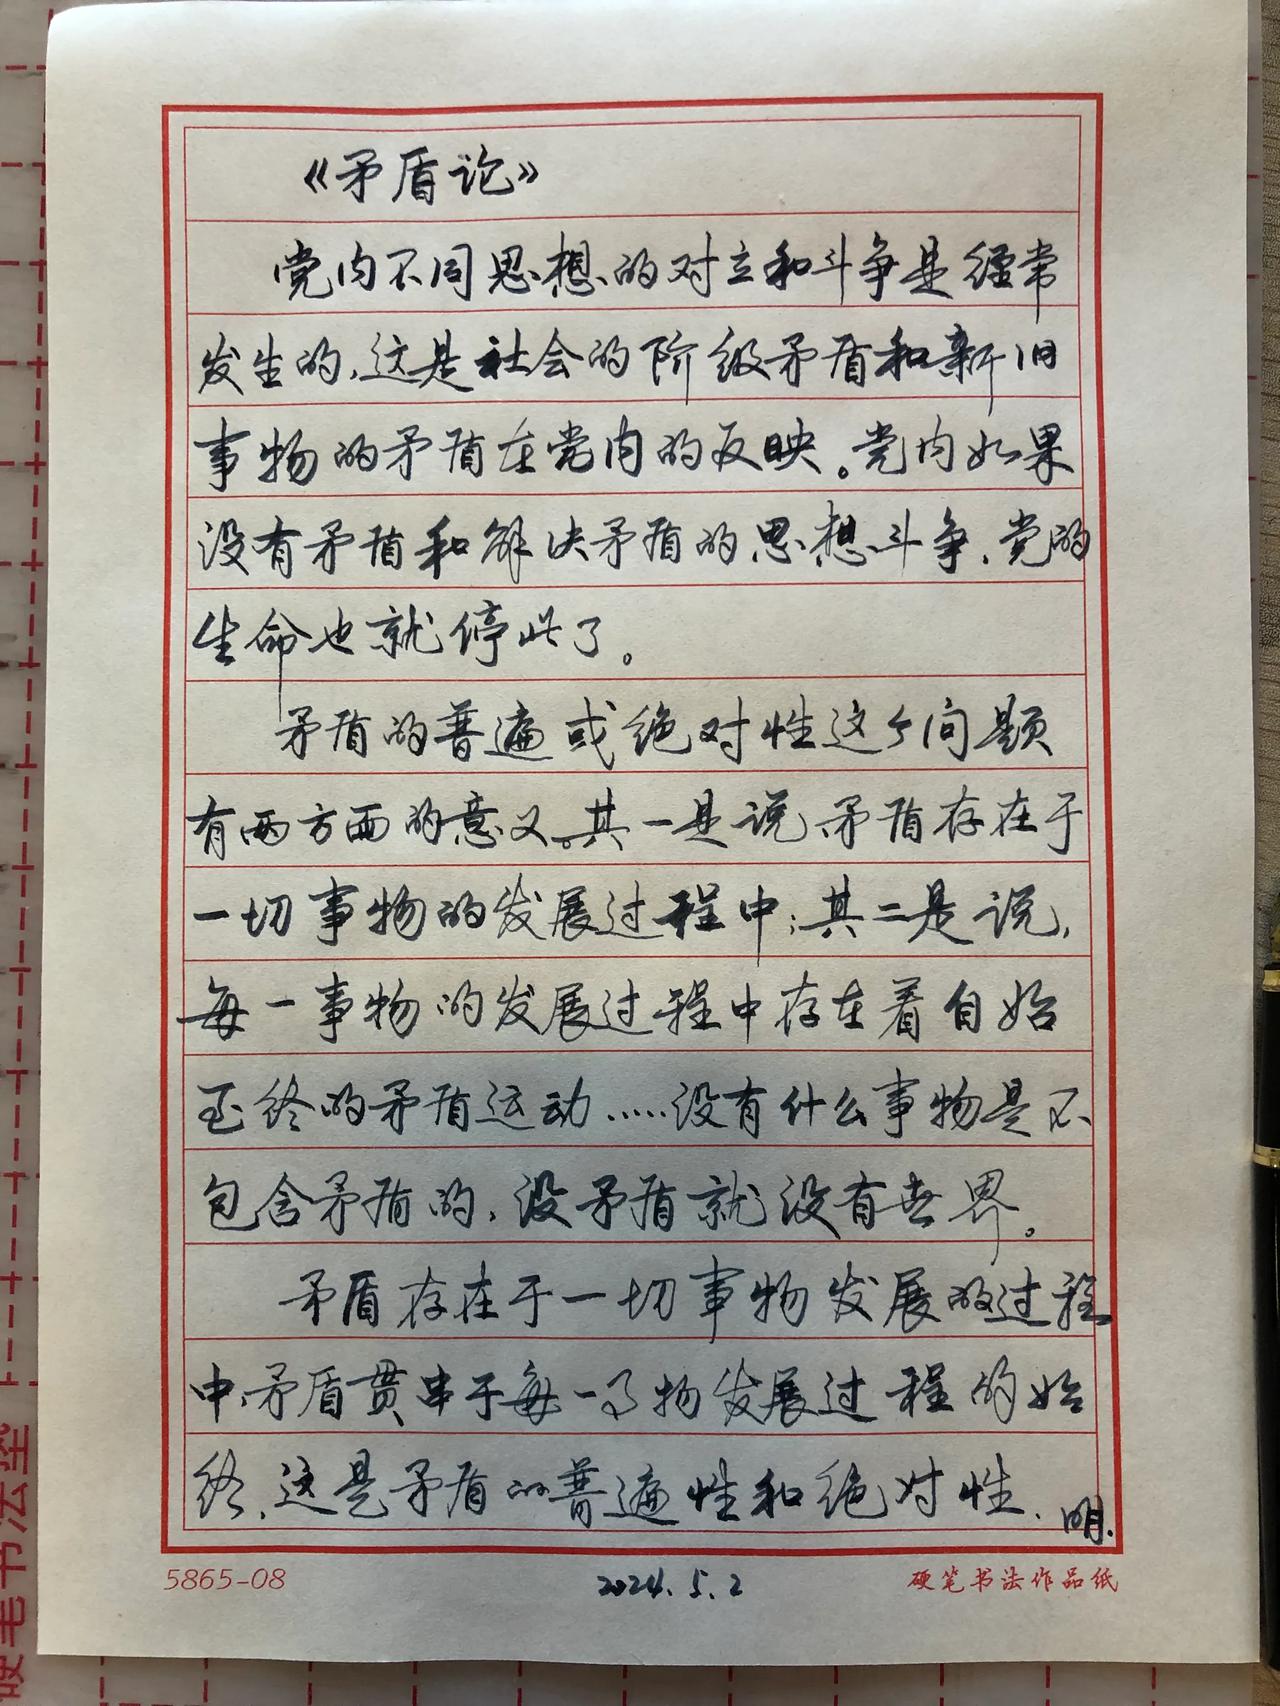 《矛盾论》
党内不同思想的对立和斗争是经常
发生的,这是社会的阶级矛盾和新旧
事物的矛盾在党内的反映。党内如果
没有矛盾和解决矛盾的思想斗争,党的
生命也就停止了。
矛盾的普遍或绝对性这个问题
有两方面的意义。其一是说,矛盾存在于
一切事物的发展过程中;其二是说,
每一事物的发展过程中存在着自始
至终的矛盾运动……没有什么事物是不
包含矛盾的,没矛盾就没有世界。
矛盾存在于一切事物发展的过程
中,矛盾贯串于每一事物发展过程的始
终,这是矛盾的普遍性和绝对性、明.
5865-08 2024.5.2 硬笔书法作品纸
硬毛书法垫